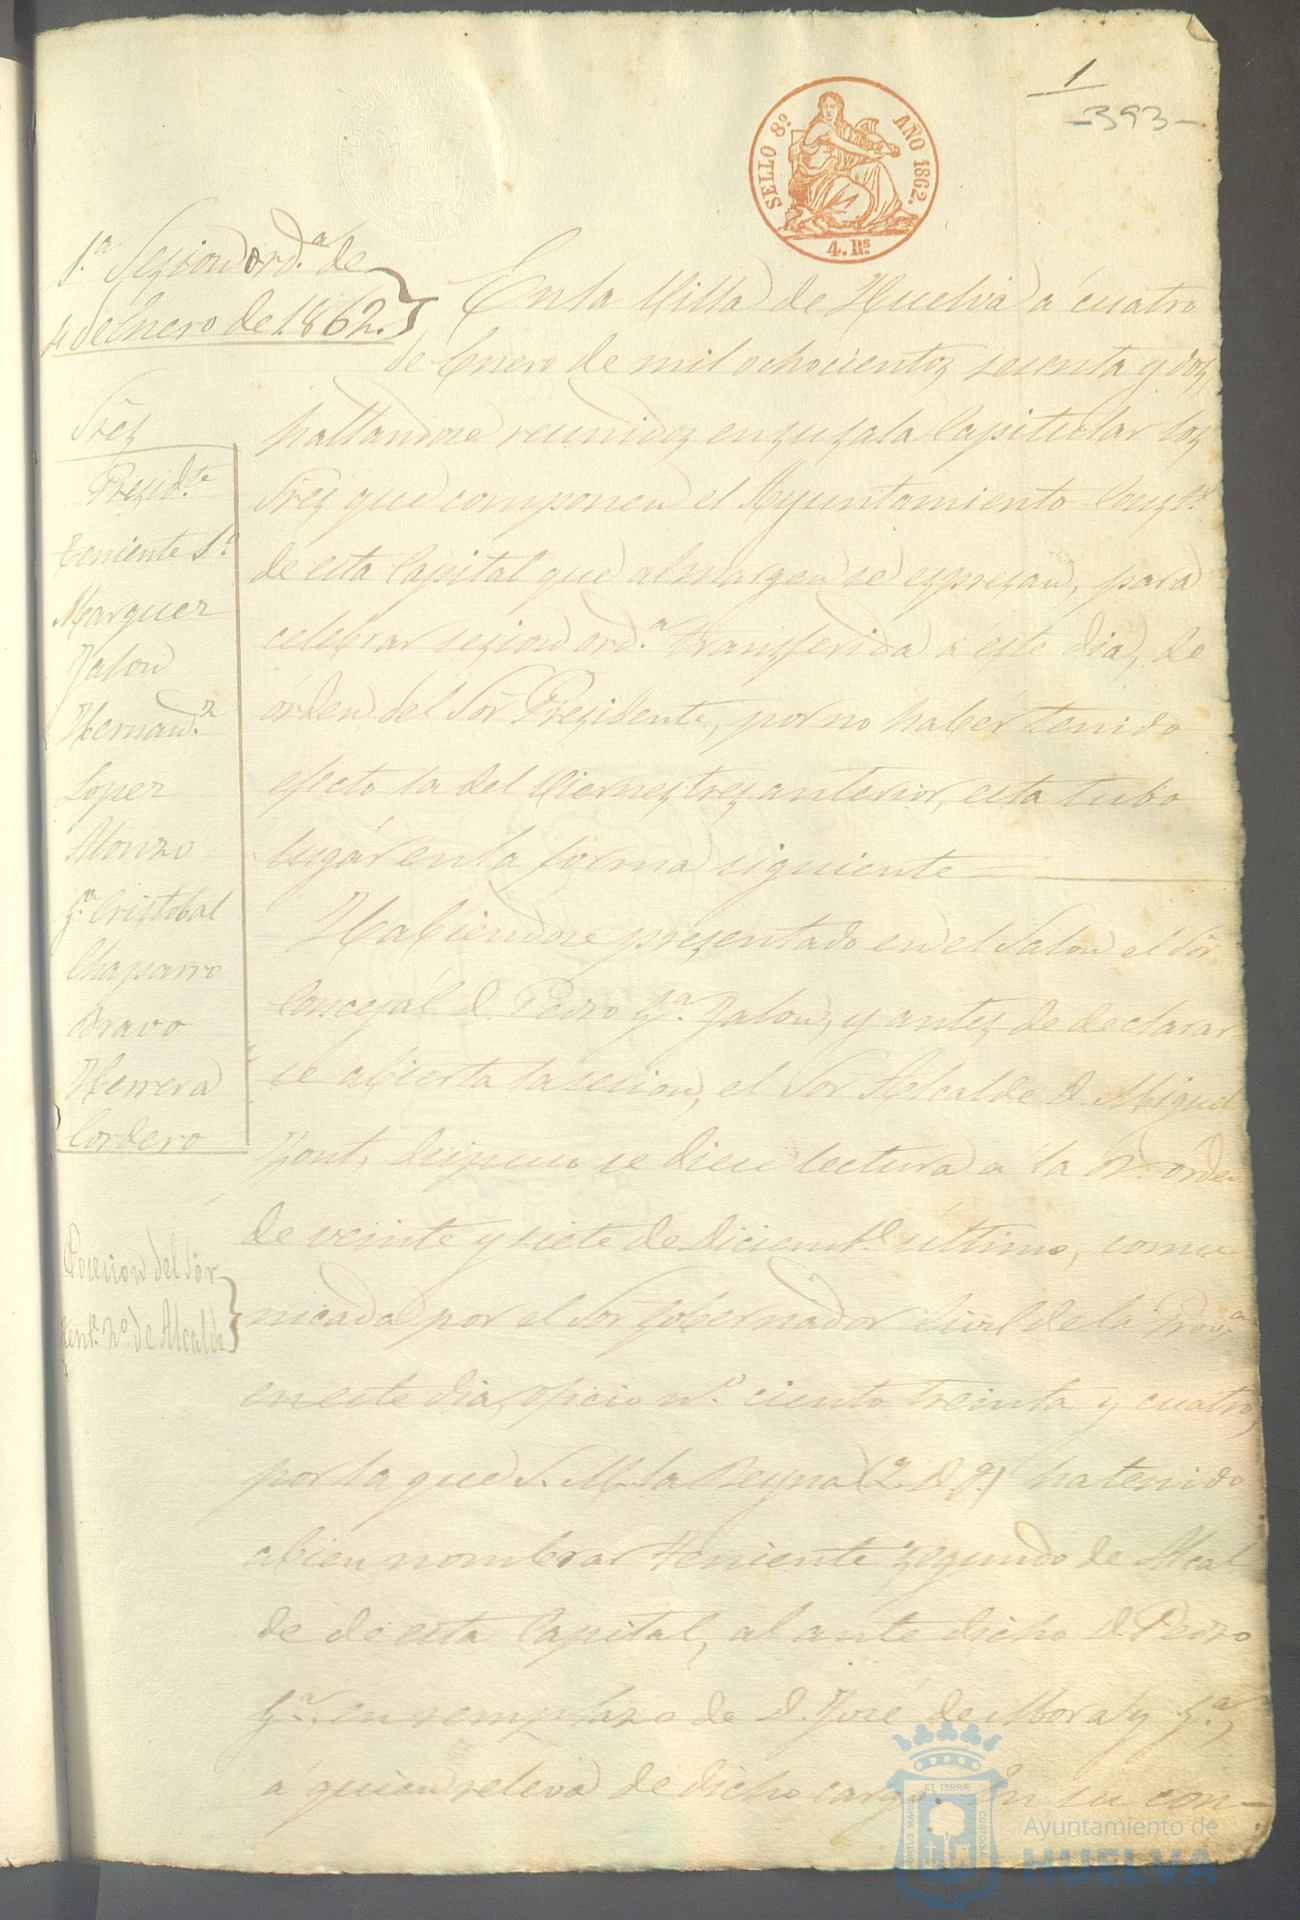 1
-393-
SELLO 8º. AÑO 1862.
4. Rs.
1.ª Sesion ord.ª de
4 de Enero de 1862.
Sres
Presid.te
Teniente 1.º
Marquez
Jalon
Hernand.z
Lopez
Alonzo
G.ª Cristobal
Chaparro
Bravo
Herrera
Cordero
Posesion del Sor
Tent.e 2º. de Alcalde
En la Villa de Huelva á cuatro
de Enero de mil ochocientos sesenta y dos,
hallandose reunidos en su sala Capitular los
Sres que componen el Ayuntamiento Const.l
de esta Capital que al margen se espresan, para
celebrar sesion ord.ª transferida á este dia, de
órden del Sor Presidente, por no haber tenido
efecto la del Viernes tres anterior, esta tubo
lugár en la forma siguiente
Habiendose presentado en el Salon el Sor
Concejál D. Pedro G.ª Jalon, y antes de declarar
se abierta la sesion, el Sor Alcalde D. Miguel
Font, dispuso se diese lectura á la R. orden
de veinte y siete de Diciemb.e último, comu-
nicada por el Sor Gobernador Civil de la Prov.ª
en este dia, oficio n.º ciento treinta y cuatro,
por la que S. M. la Reyna (q. D. g.) ha tenido
abien nombrar teniente segundo de Alcal
de de esta Capital, al ante dicho D. Pedro
G.ª en remplazo de D. José de Mora y G.ª,
á quien releva de dicho cargo. En su con-
PORTUS MARIS ET TERRÆ CUSTODIA
Ayuntamiento de
HUELVA